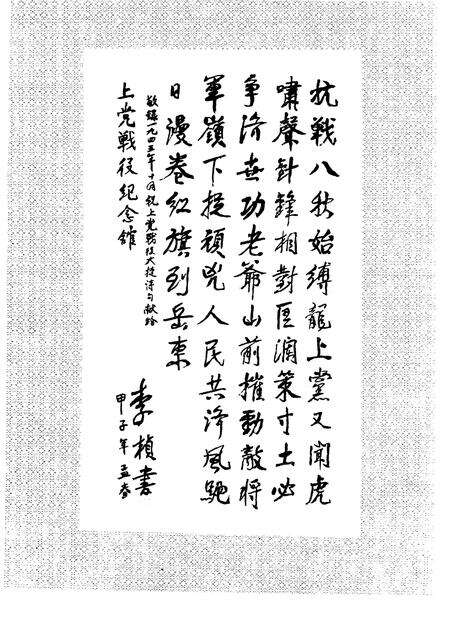 抗戰八秋始縛龍上黨又聞虎
嘯聲針鋒相對匡策寸土必
争济世功老爺山前摧勁敵將
軍嶺下捉頑兇人民共泽風馳
日漫卷红旗到岳東
敬錄一九四五年十月祝上党戰役大捷诗句献给
上党戰役纪念館
李楨書
甲子年孟春